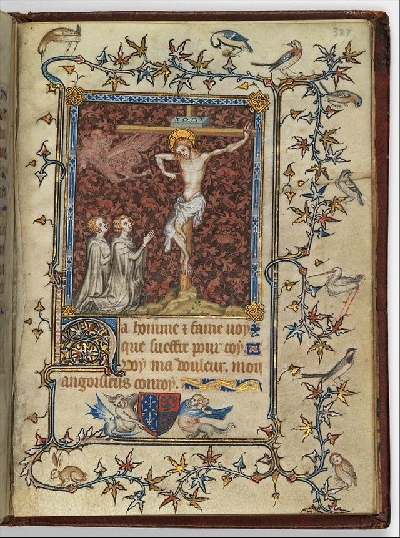 Ha homme ⁊ fame voy
que sueffre pour toy
voy ma douleur. mon
angoisseus conroy.